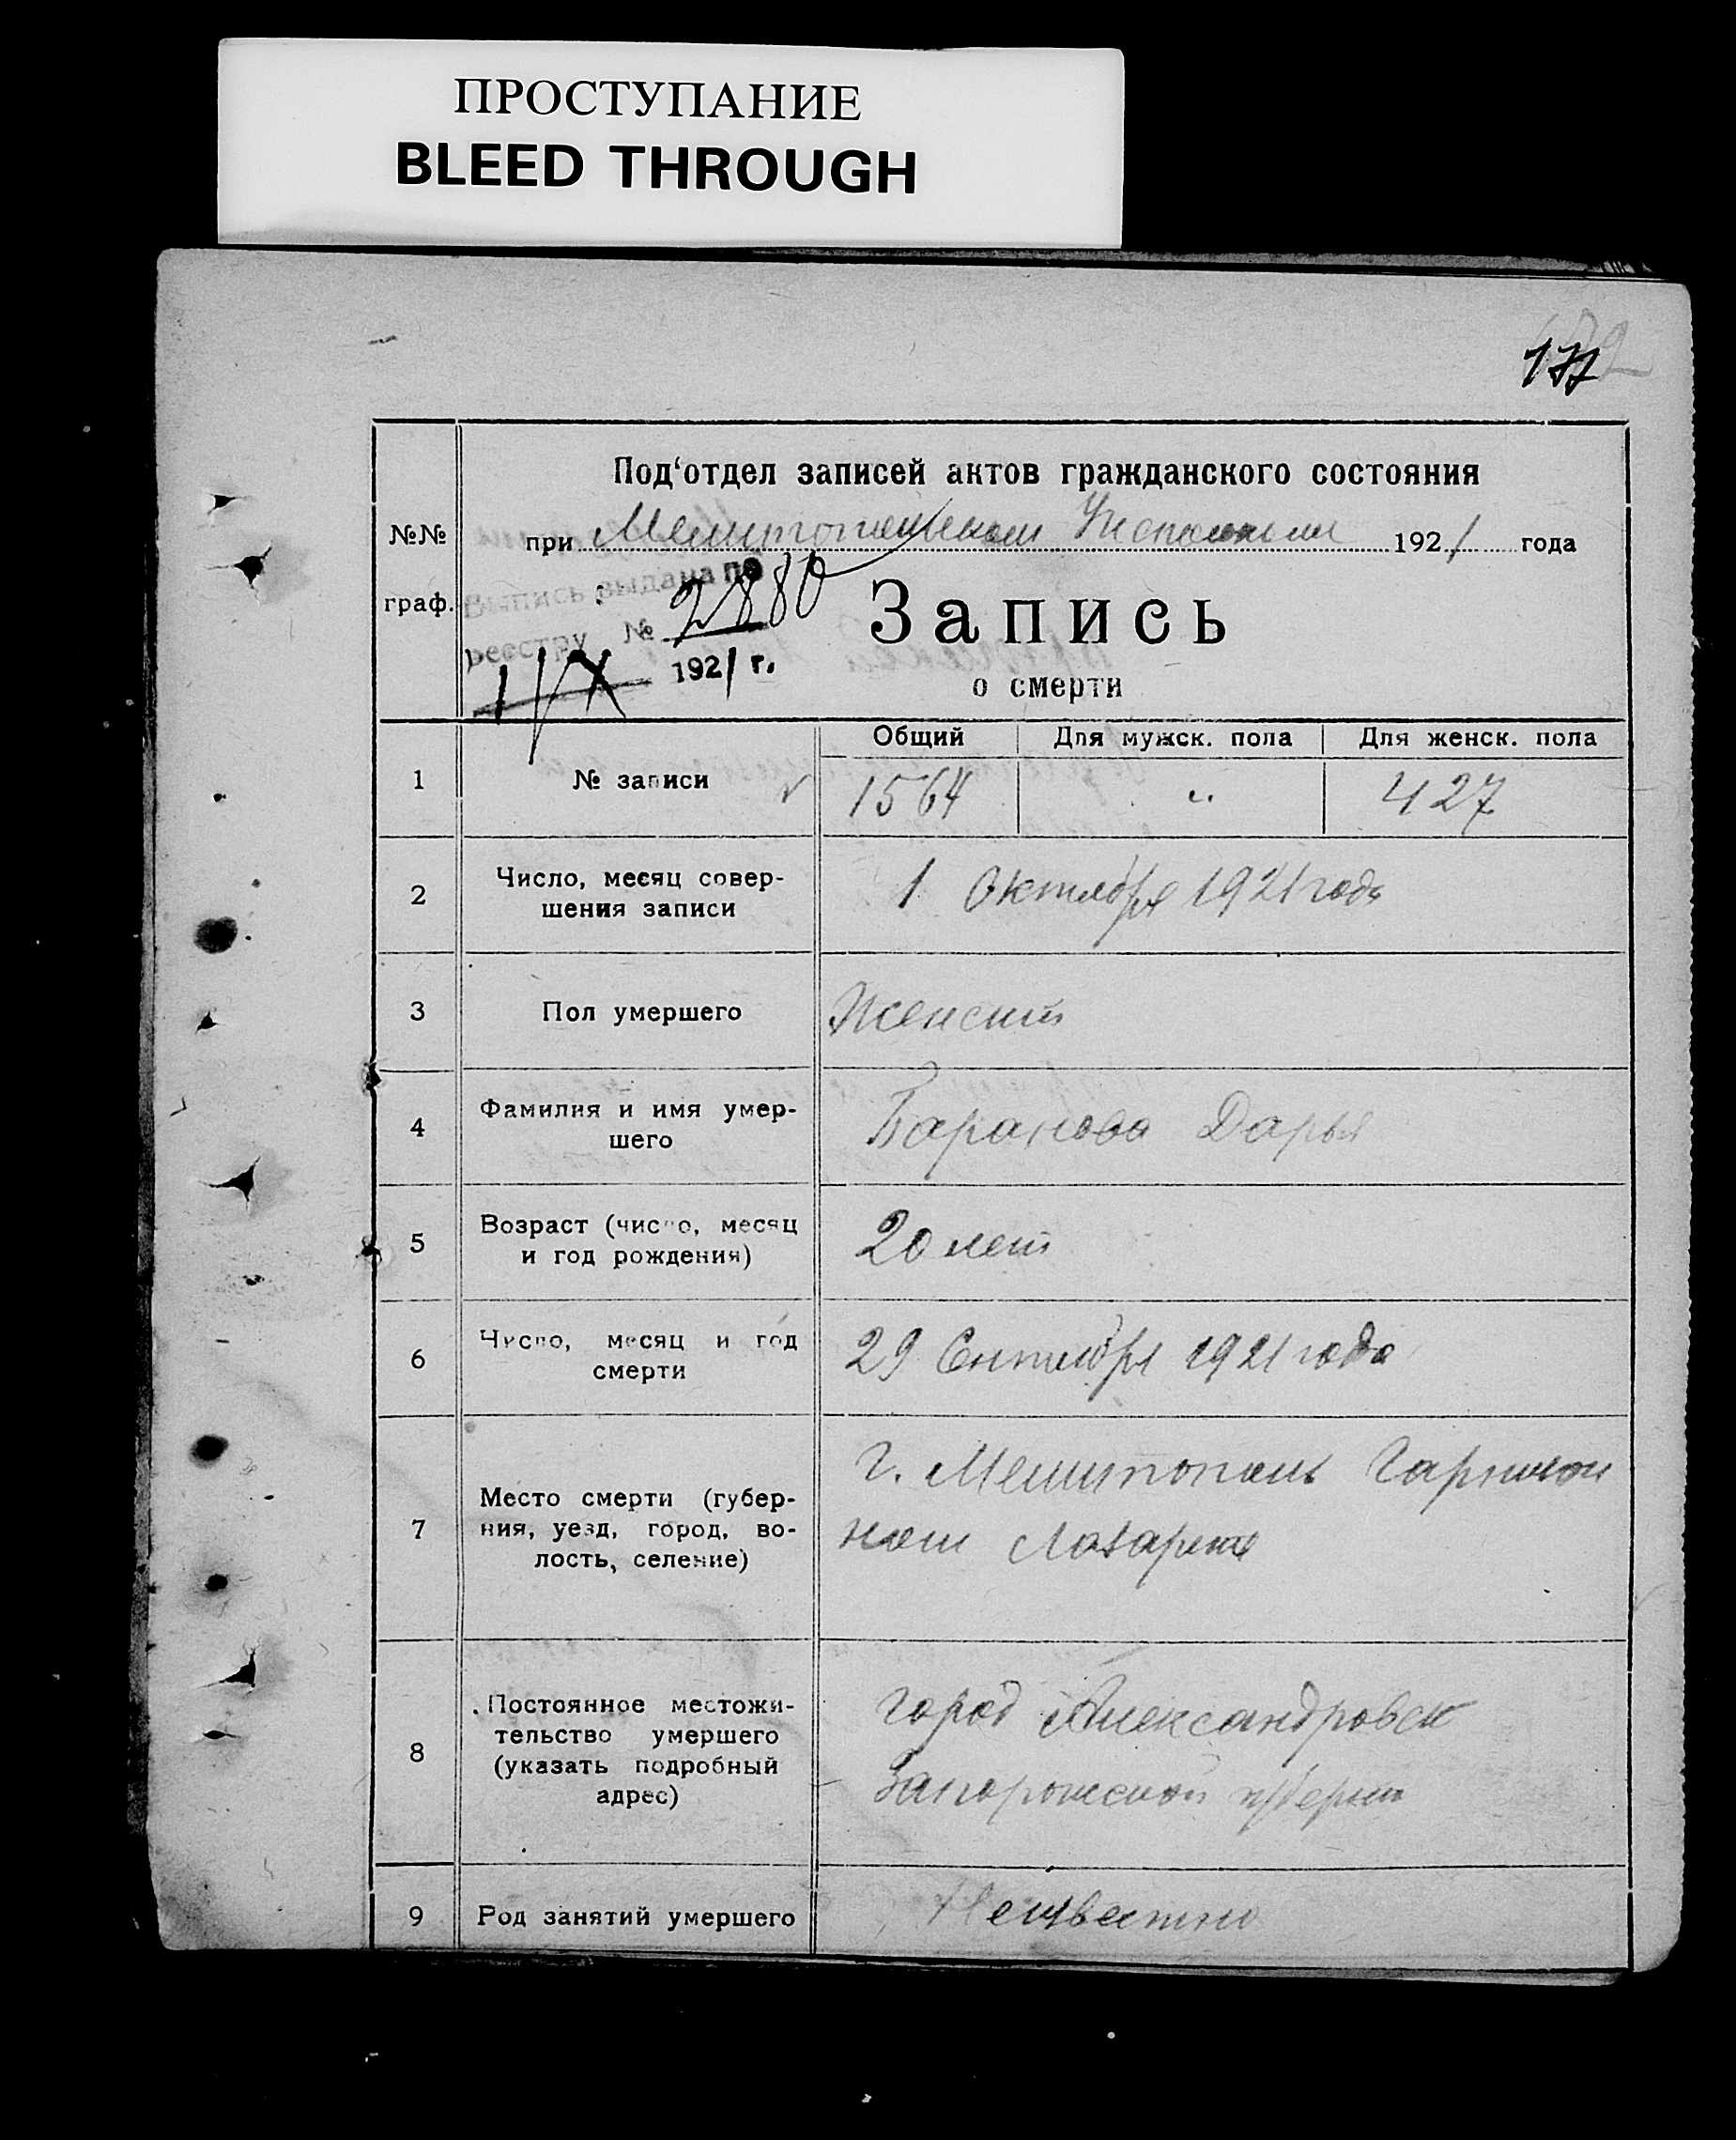 ПРОСТУПАНИЕ
BLEED THROUGH
177
Под‘отдел записей актов гражданского состояния
№№
граф.
при Мелитопольском 1921 года
Выпись выдана по
реестру № 2880
1/X 1921 г.
Запись
о смерти
Общий Для мужск. пола Для женск. пола
1 № записи 1564 " 427
2 Число, месяц совер-
шения записи
1 Октября 1921 года
3 Пол умершего Женский
4 Фамилия и имя умер-
шего
Баранова Дарья
5 Возраст (число, месяц
и год рождения)
20 лет
6 Число, месяц и год
смерти
29 Сентября 1921 года
7 Место смерти (губер-
ния, уезд, город, во-
лость, селение)
г. Мелитополь Гарнизон
ном Лазарете
8 Постоянное местожи-
тельство умершего
(указать подробный
адрес)
город Александровск
Запорожской губернии
9 Род занятий умершего Неизвестно